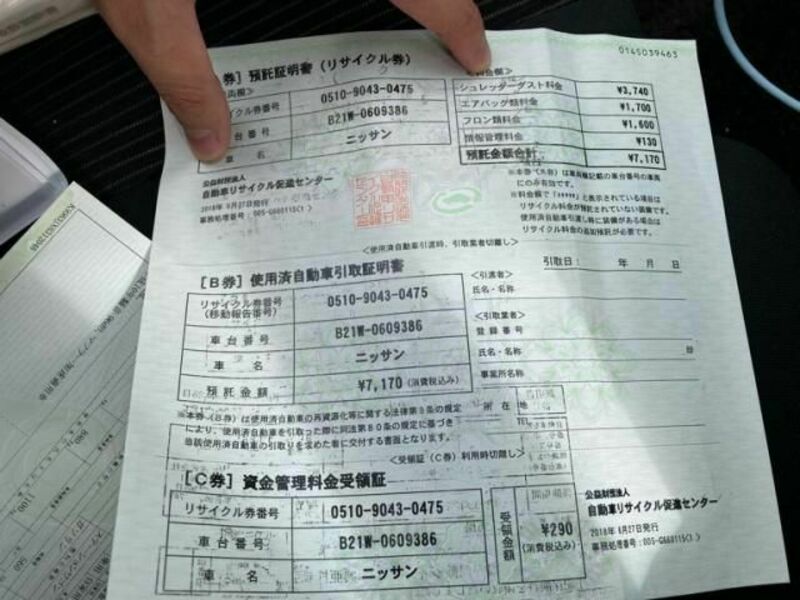 0145039463
券］預託証明書（リサイクル券）
イクル券番号 0510-9043-0475
台番号 B21W-0609386
車名 ニッサン
シュレッダーダスト料金 ¥3,740
エアバッグ類料金 ¥1,700
フロン類料金 ¥1,600
情報管理料金 ¥130
預託金額合計 ¥7,170
公益財団法人
自動車リサイクル促進センター
2018年 6月27日発行
事務処理番号：005-G660115(1 )
※本券（A券）は車両欄記載の車台番号の車両
にのみ有効です。
※料金欄で「*****」と表示されている場合は
リサイクル料金が預託されていない装備です。
使用済自動車引渡し時に装備がある場合は
リサイクル料金の追加預託が必要です。
＜使用済自動車引渡時、引取業者切離し＞
［B券］使用済自動車引取証明書
引取日： 年 月 日
リサイクル券番号
（移動報告番号） 0510-9043-0475
車台番号 B21W-0609386
車名 ニッサン
預託金額 ¥7,170（消費税込み）
＜引渡者＞
氏名・名称
＜引取業者＞
登録番号
氏名・名称 印
事業所名称
所在地
TEL
※本券（B券）は使用済自動車の再資源化等に関する法律第9条の規定
により、使用済自動車を引取った際に同法第80条の規定に基づき
当該使用済自動車の引取りを求めた者に交付する書面となります。
＜受領証（C券）利用時切離し＞
［C券］資金管理料金受領証
リサイクル券番号 0510-9043-0475
車台番号 B21W-0609386
車名 ニッサン
受領金額 ¥290
（消費税込み）
公益財団法人
自動車リサイクル促進センター
2018年 6月27日発行
事務処理番号：005-G660115(1 )